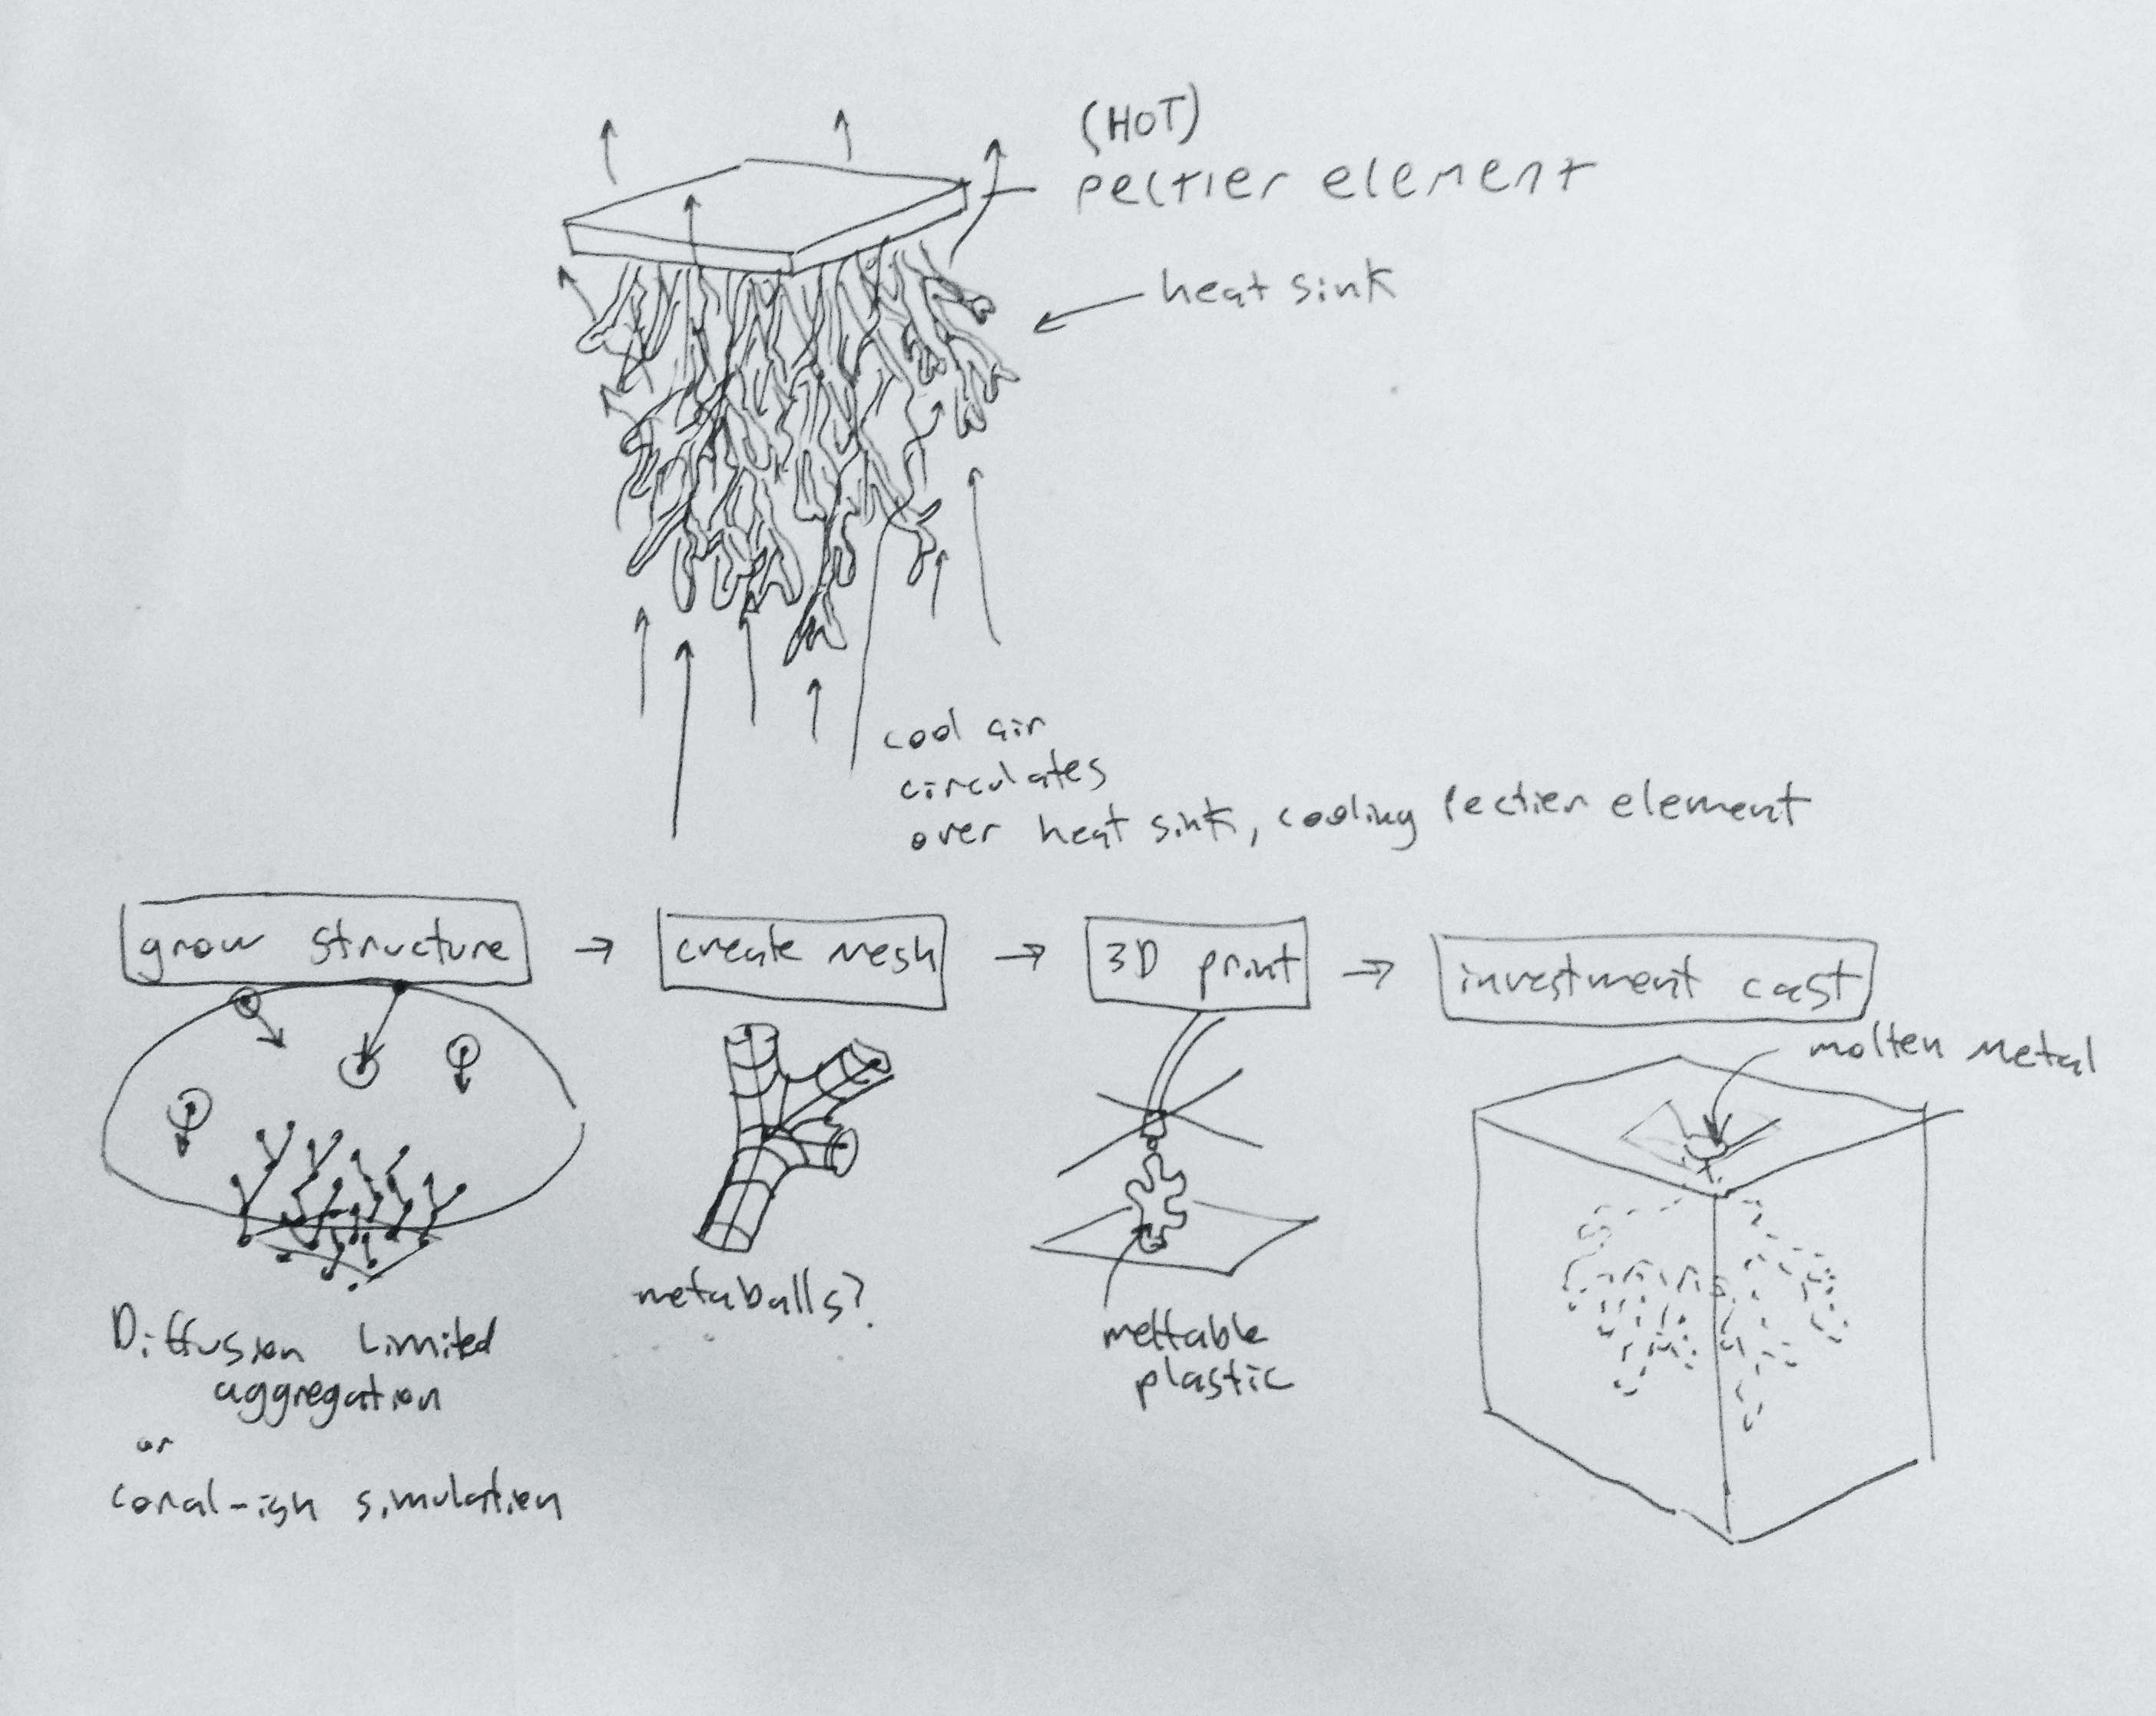 (HOT)
peltier element
heat sink
cool air
circulates
over heat sink, cooling Peltier element
grow structure → create mesh → 3D print → investment cast
molten metal
metaballs?
meltable
plastic
Diffusion Limited
aggregation
or
coral-ish simulation